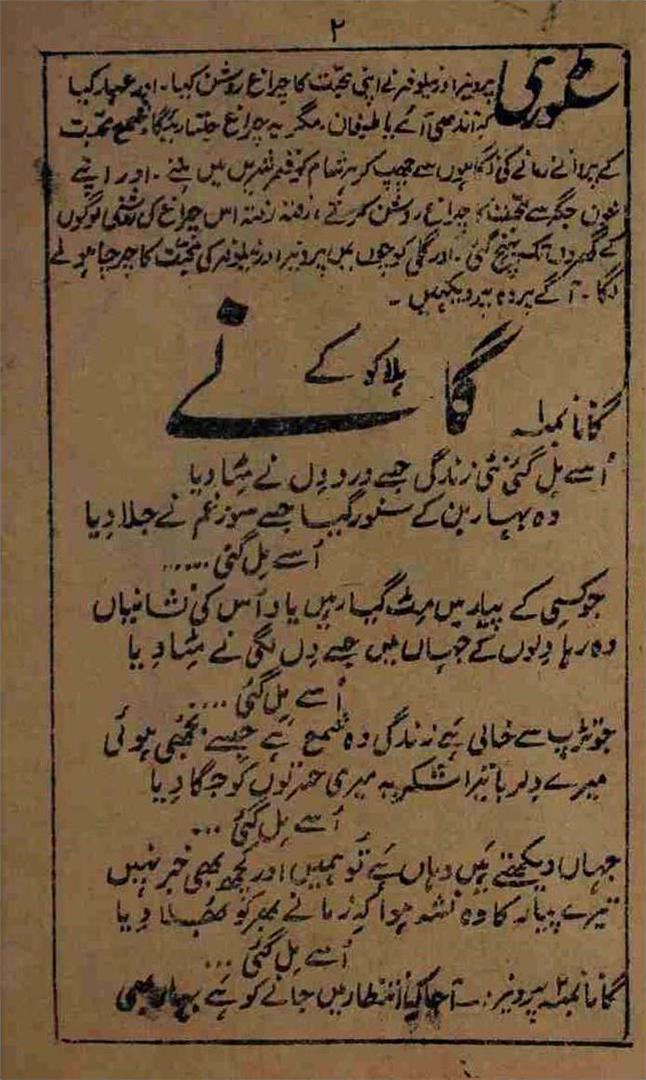 ۲
سٹوری
پرویز اور نیلوفر نے اپنی محبت کا چراغ روشن کیا۔ اور عہد کیا
کہ آندھی آئے یا طوفان، مگر یہ چراغ جلتا رہیگا، شمع محبت
کے پروانے زمانے کی نگاہوں سے چھپ کر ہر شام کو قصر شیریں میں ملتے۔ اور اپنے
خون جگر سے محبت کا چراغ روشن کرتے، رفتہ رفتہ اس چراغ کی روشنی لوگوں
کے گھروں تک پہنچ گئی۔ اور گلی کوچوں میں پرویز اور نیلوفر کی محبت کا چرچا ہونے
لگا۔ آگے پردہ پر دیکھیں۔
ہلاکو کے
گانے
گانا نمبر ۱
اُسے مِل گئی نئی زندگی جسے دردِ دِل نے مٹا دیا
وہ بہار بن کے سنور گیا جسے سوز غم نے جلا دیا
اُسے مِل گئی .....
جو کسی کے پیار میں مِٹ گیا رہیں یاد اُس کی نشانیاں
وہ رہا دِلوں کے جہاں میں جسے دِل لگی نے مٹا دیا
اُسے مِل گئی ....
جو تڑپ سے خالی ہے زندگی وہ شمع ہے جیسے بجھی ہوئی
میرے دِلربا تیرا شکریہ میری حسرتوں کو جگا دِیا
اُسے مِل گئی ...
جہاں دیکھتے ہیں وہاں ہے تُو ہمیں اور کچھ بھی خبر نہیں
تیرے پیار کا وہ نشہ ہوا کہ زمانے بھر کو بھلا دِیا
اُسے مِل گئی ...
گانا نمبر ۲ پرویز:۔ آجا کہ انتظار میں جانے کو ہے بہار بھی